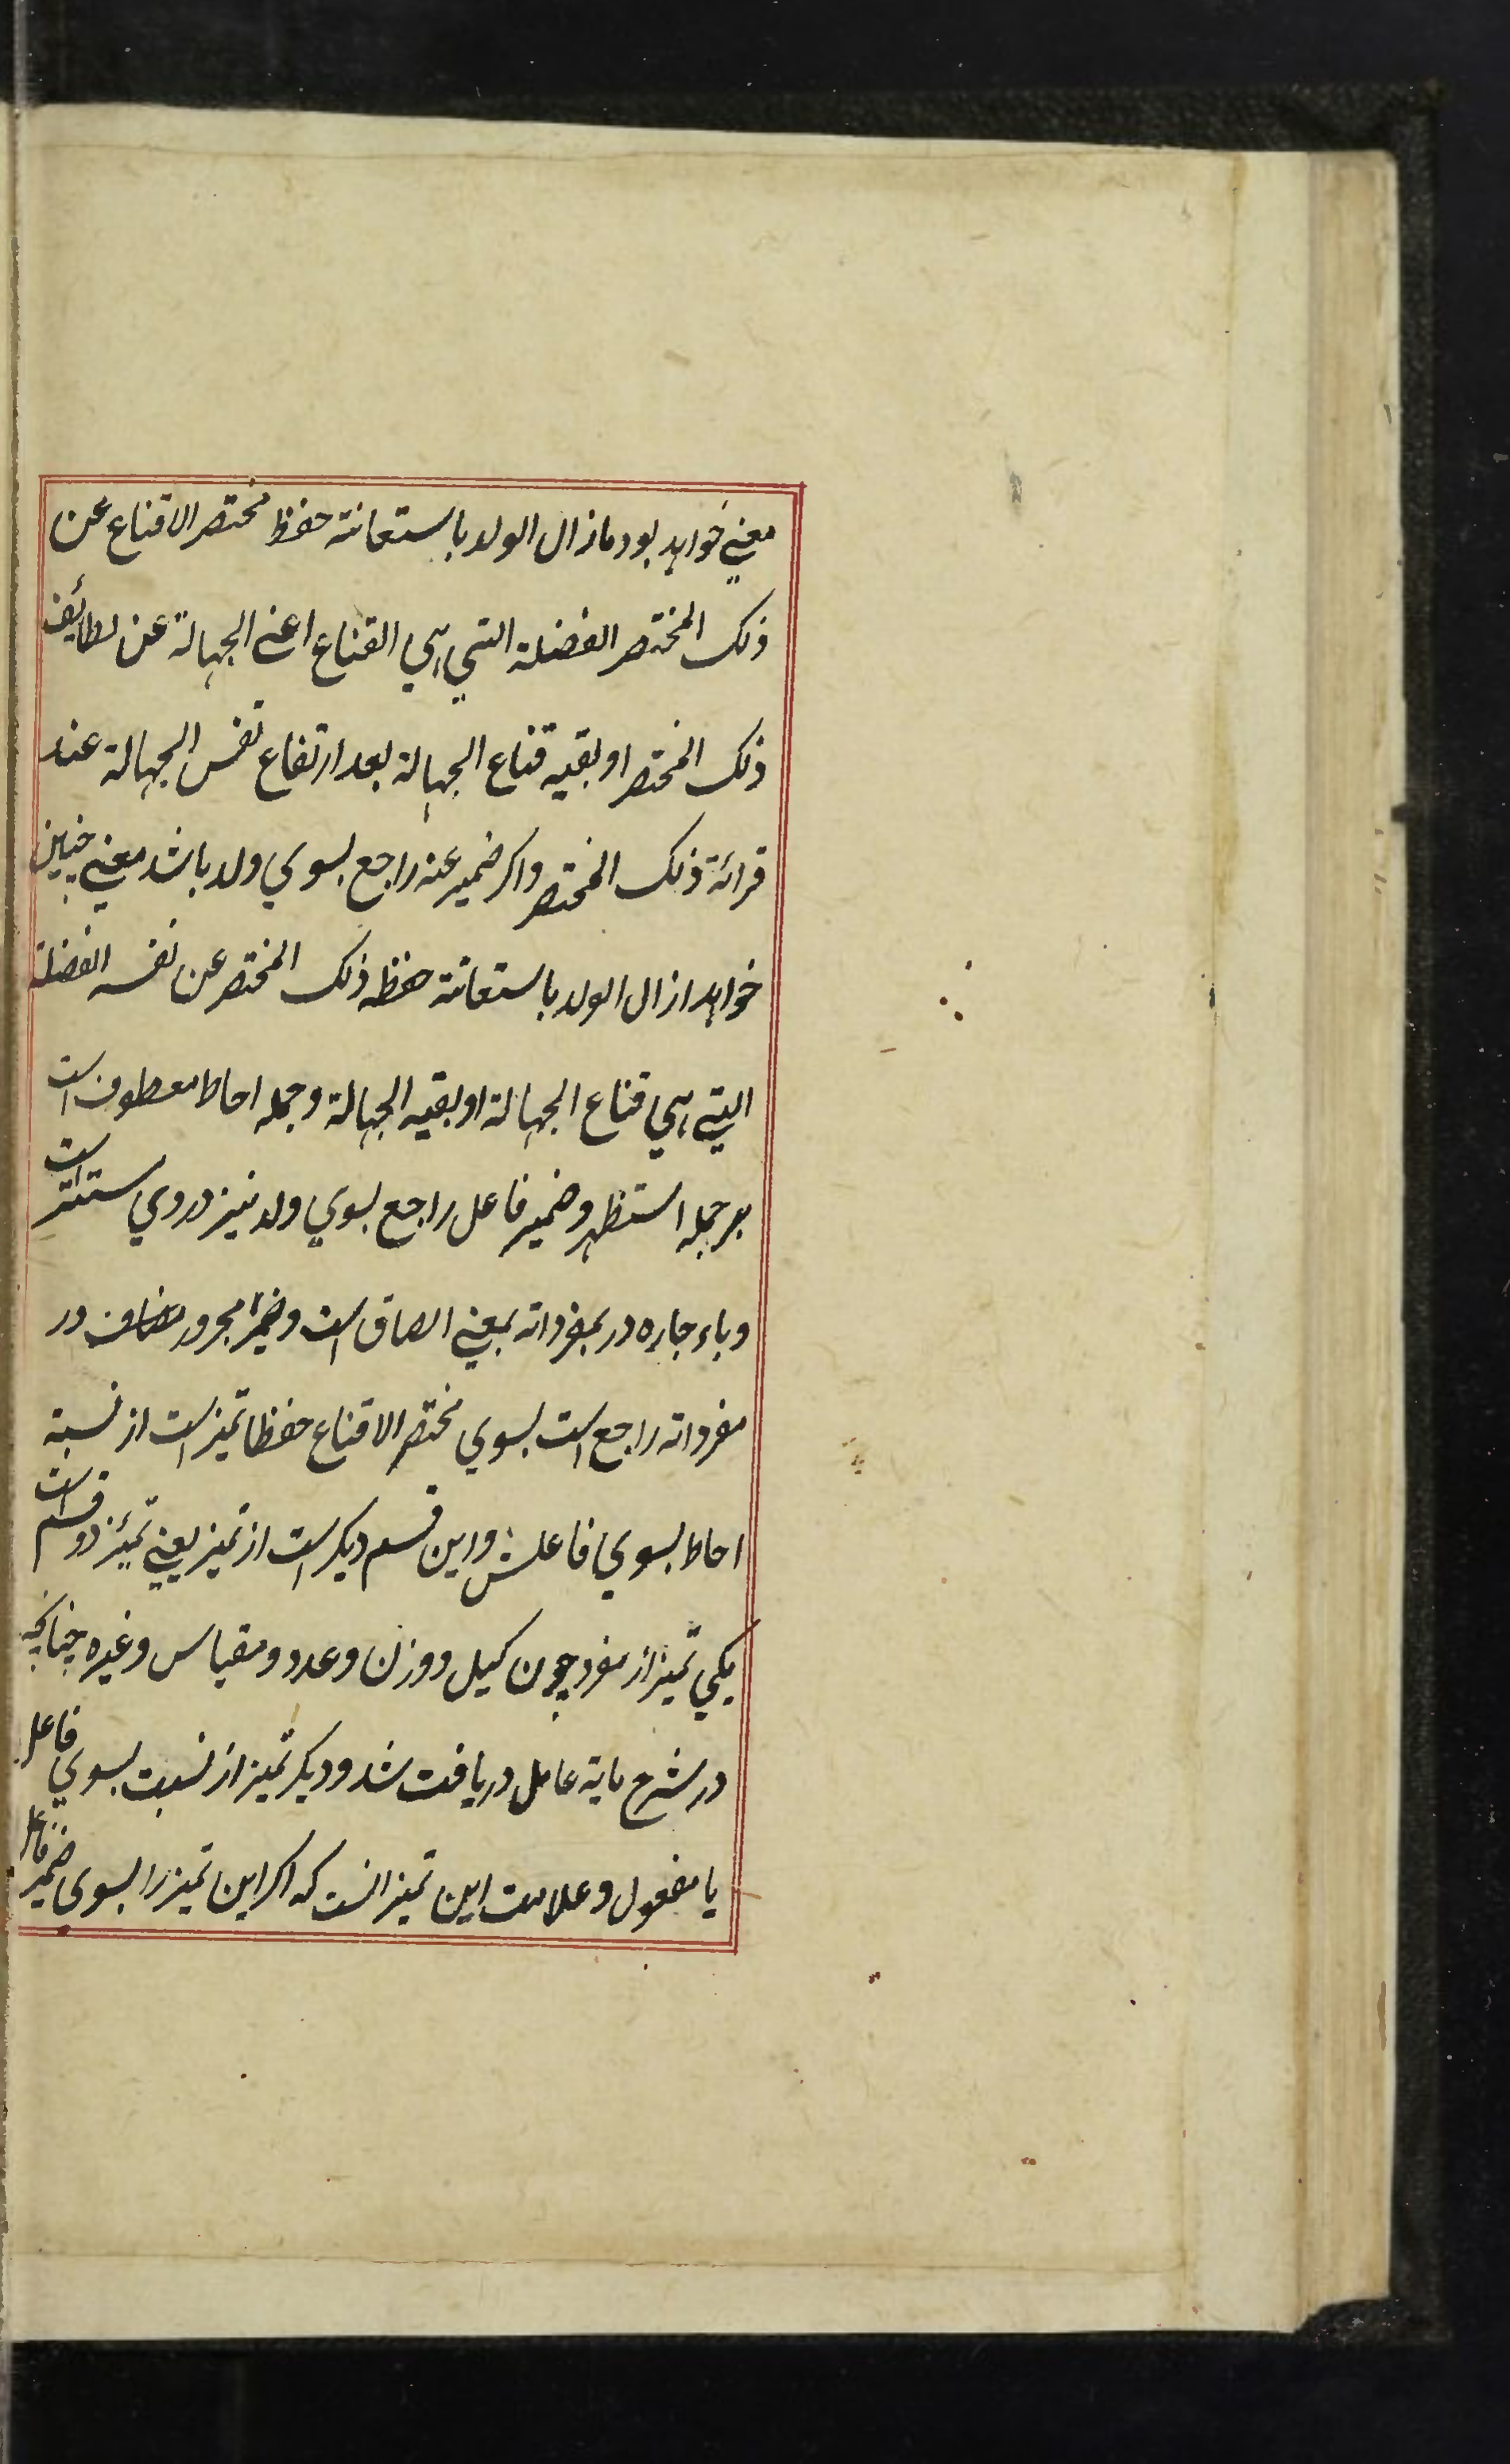 معنی خواهد بود ما زال الولد باستعانة حفظ مختصر الاقناع عن
ذلك المختصر الفضلة التي هي القناع اعني الجهالة عن لطائف
ذلك المختصر او بقیه قناع الجهالة بعد ارتفاع نفس الجهالة عند
قرائة ذلك المختصر واکر ضمیر عنه راجع بسوي ولد باشد معني چنین
خواهد ازال الولد باستعانة حفظه ذلك المختصر عن نفسه الفضلة
التي هي قناع الجهالة او بقیه الجهالة وجمله احاط معطوف است
بر جمله استظهر وضمیر فاعل راجع بسوي ولد نیز در وي مستتر است
وباء جاره در بمفرداته بمعني الصاق است وضمیر مجرور مضاف در
مفرداته راجع است بسوي مختصر الاقناع حفظا تمیز است از نسبة
احاط بسوي فاعلش واین قسم دیکر است از تمیز یعني تمیز دو قسم است
یکي تمیز از مفرد چون کیل ووزن وعدد ومقیاس وغیره چنانچه
در شرح مایة عامل دریافت شد ودیکر تمیز از نسبت بسوي فاعل
یا مفعول وعلامت این تمیز انست که اکر این تمیز را بسوی ضمیر فاعل